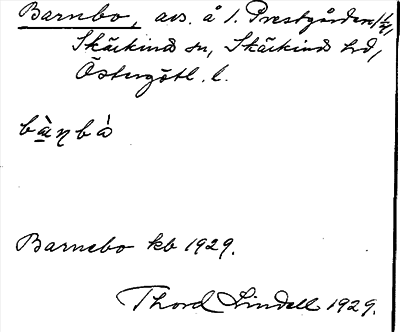 Barnbo, avs. å 1. Prestgården 1/1,
Skärkind sn, Skärkind hd,
Östergötl. l.
bàṇbà
Barnebo kb 1929.
Thord Lindell 1929.